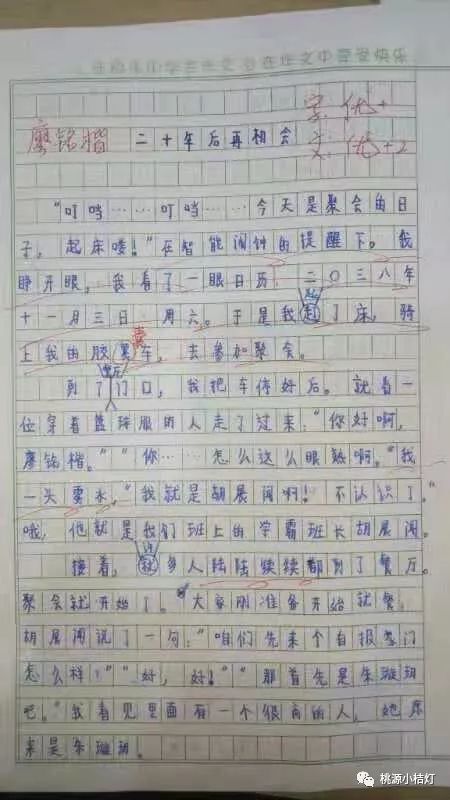 在作文中享受快乐
字:优+
廖铭楷 二十年后再相会 文:优+2
“叮当……叮当……今天是聚会的日
子,起床喽!”在智能闹钟的提醒下。我
睁开眼,我看了一眼日历,二〇三八年
十一月三日,周六。于是我起了床,骑
上我的胶囊车,去参加聚会。
到了餐厅门口,我把车停好后。就看一
位穿着篮球服的人走了过来:“你好啊,
廖铭楷。”“你……怎么这么眼熟啊。”我
一头雾水,“我就是胡展闻啊!不认识了。”
哦,他就是我们班上的学霸班长胡展闻。
接着,许多人陆陆续续都到了餐厅。
聚会就开始了。“大家刚准备开始就餐,
胡展闻说了一句:“咱们先来个自报家门
怎么样?”“好,好!”“那首先是朱璇玥
吧。”我看见里面有一个很高的人,她原
来是朱璇玥。
桃源小桔灯